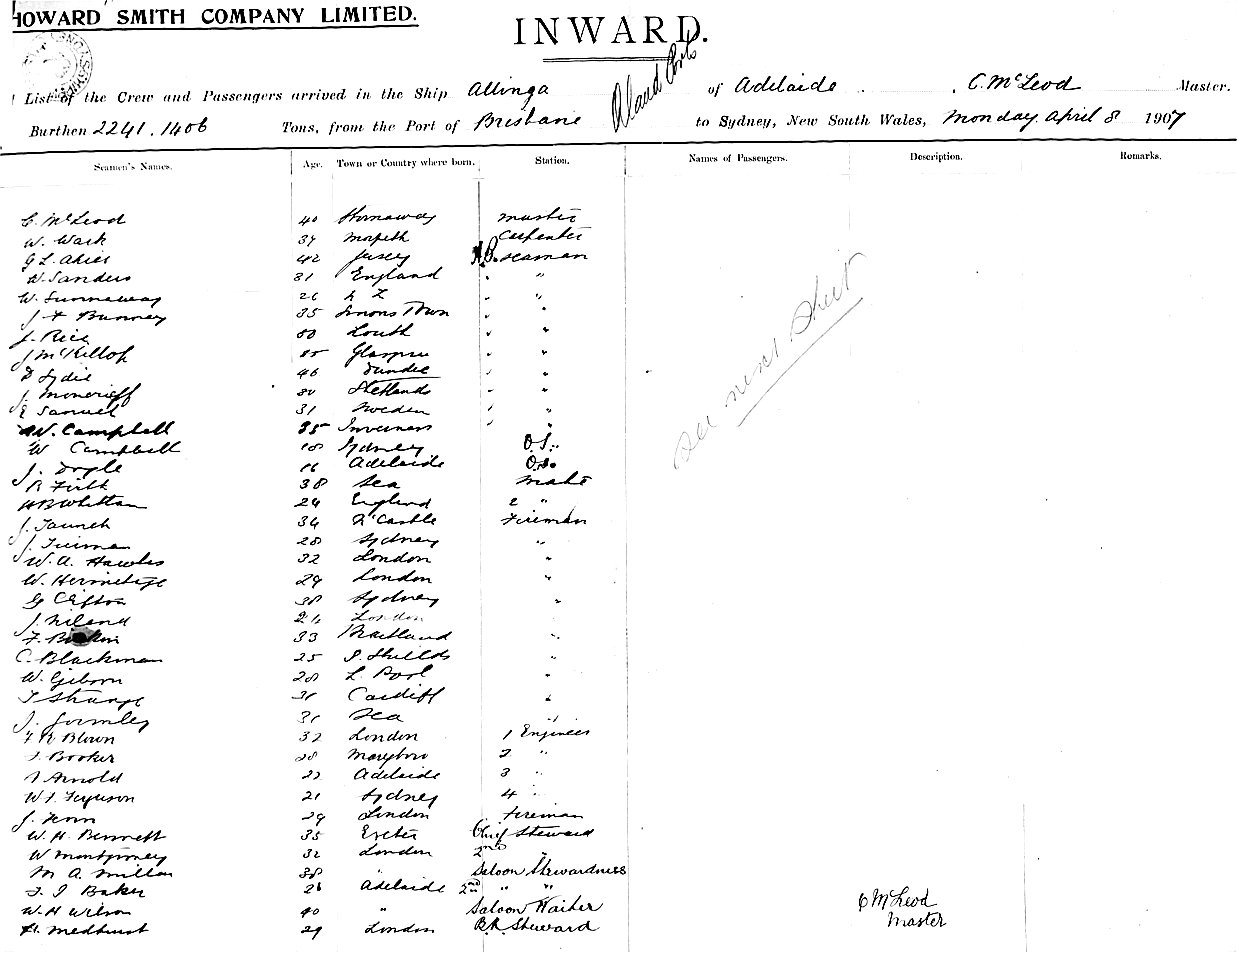 HOWARD SMITH COMPANY LIMITED.
INWARD.
List of the Crew and Passengers arrived in the Ship Allinga of Adelaide, C. McLeod Master.
Burthen 2241.1406 Tons, from the Port of Brisbane to Sydney, New South Wales, Monday April 8 1907
Seamen's Names. Age. Town or Country where born. Station. Names of Passengers. Description. Remarks.
C. McLeod 40 Stornaway master
W. Wark 37 Morpeth Carpenter
42 Jersey A.B. seaman
W. Sanders 31 England "
W. Sunnaway 26 "
Bunney 35 Simons Town "
J. Rice Louth "
J McKillop Glasgow "
46 Dundee "
J. Moncrieff Shetlands "
E Samuel 31 Sweden "
W. Campbell 35 Inverness "
W Campbell 18 Sydney O.S.
J. Doyle 16 Adelaide O.S.
R Firth 38 Sea mate
24 England 2 "
J. 34 N'Castle Fireman
J. 28 Sydney "
W. A. Hawkes 32 London "
W. 29 London "
G Clifton 38 Sydney "
J. Niland London "
F. 33 Maitland "
C. Blackman 25 S. Shields "
W. Gibson 28 L. Pool "
T Strange Cardiff "
J. Gormley 31 Sea "
Blown 32 London 1 Engineer
Booker 28 Maryboro 2 "
Arnold 22 Adelaide 3 "
W. Ferguson 21 Sydney 4 "
J. 29 London Fireman
W. H. Bennett 35 Exeter Chief Steward
W Montgomery 32 London 2nd "
M A. Millar 38 " Saloon Stewardness
Baker 26 Adelaide 2nd " "
W. H Wilson 40 " Saloon Waiter
H. Medhurst 29 London B.R. Steward
see next sheet
C McLeod
Master